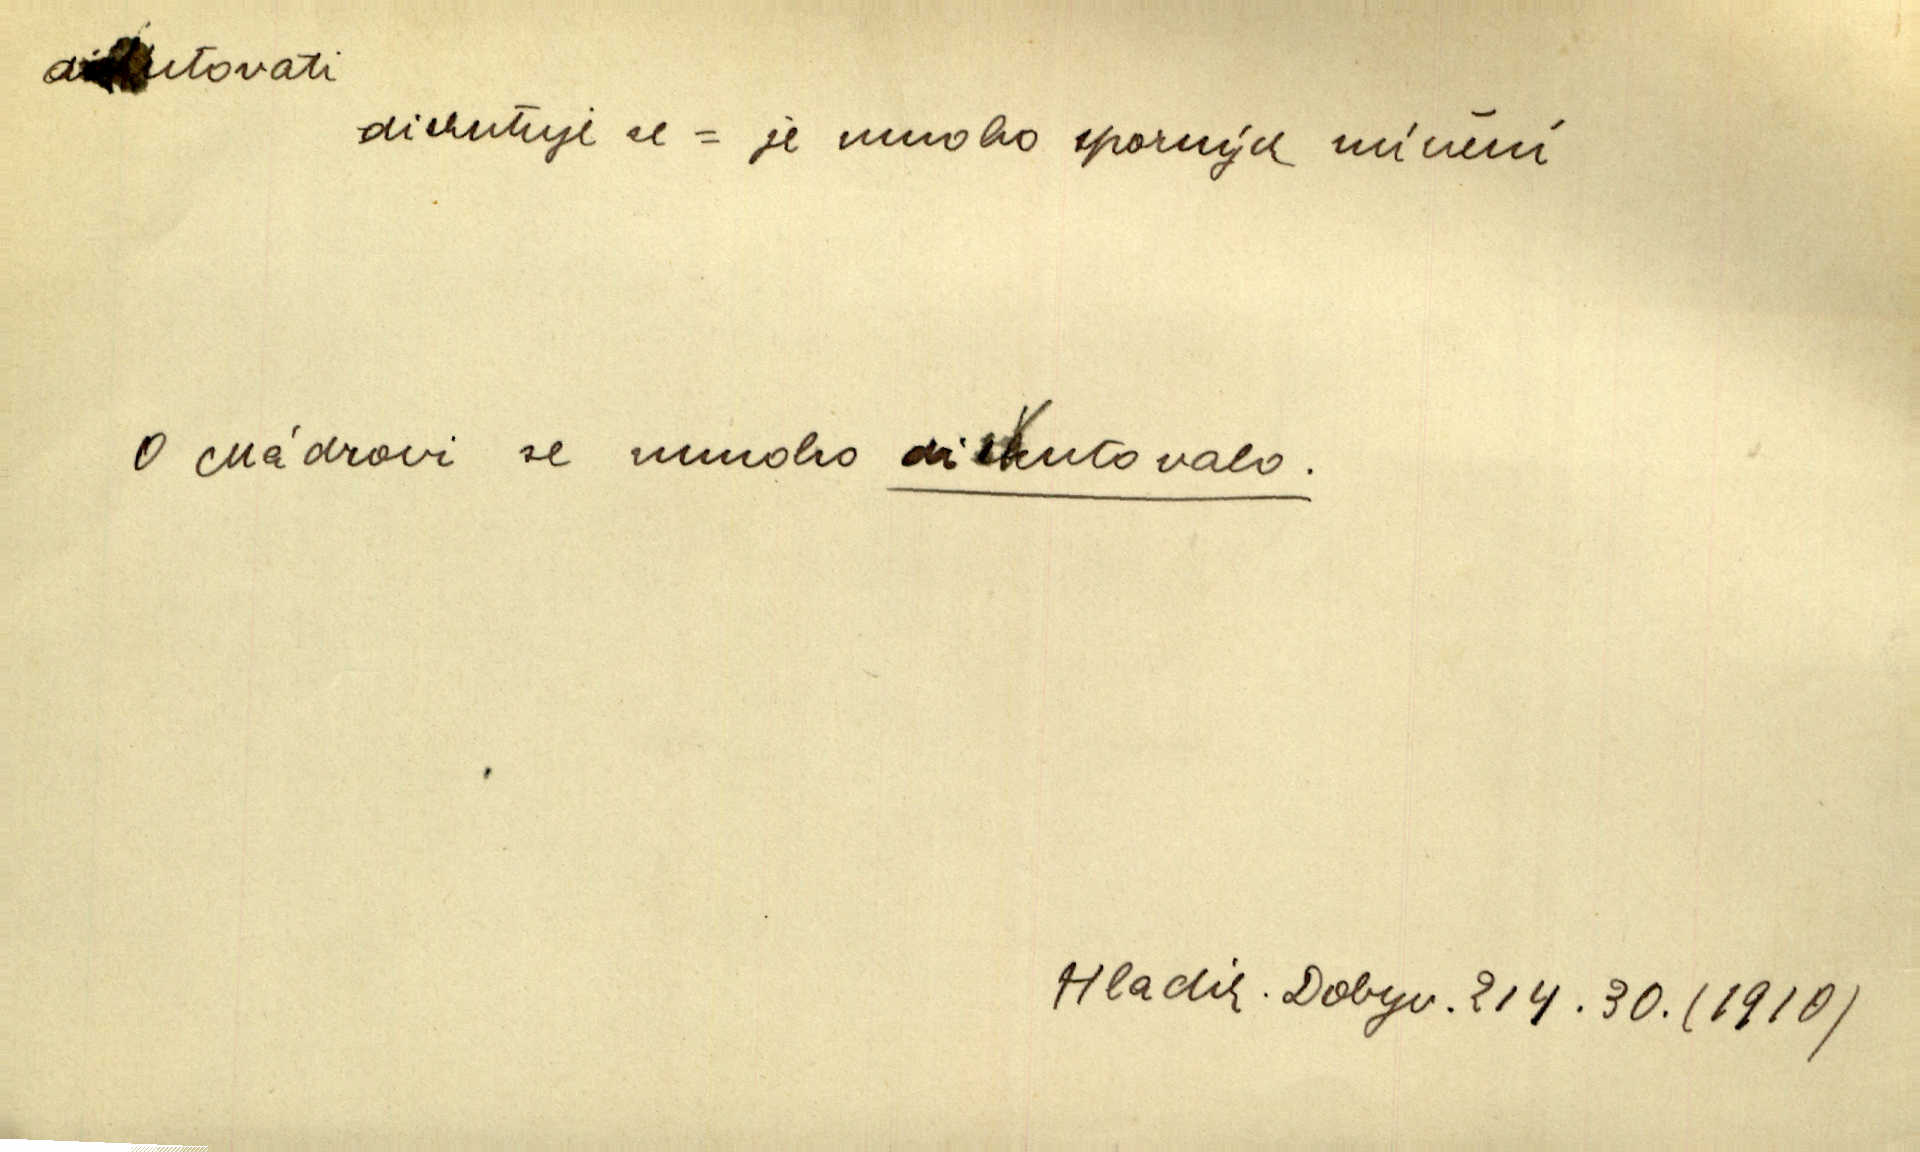 diskutovati
diskutuje se = je mnoho sporných mínění
O Mádrovi se mnoho diskutovalo.
Hladík. Dobyv. 214. 30. (1910)